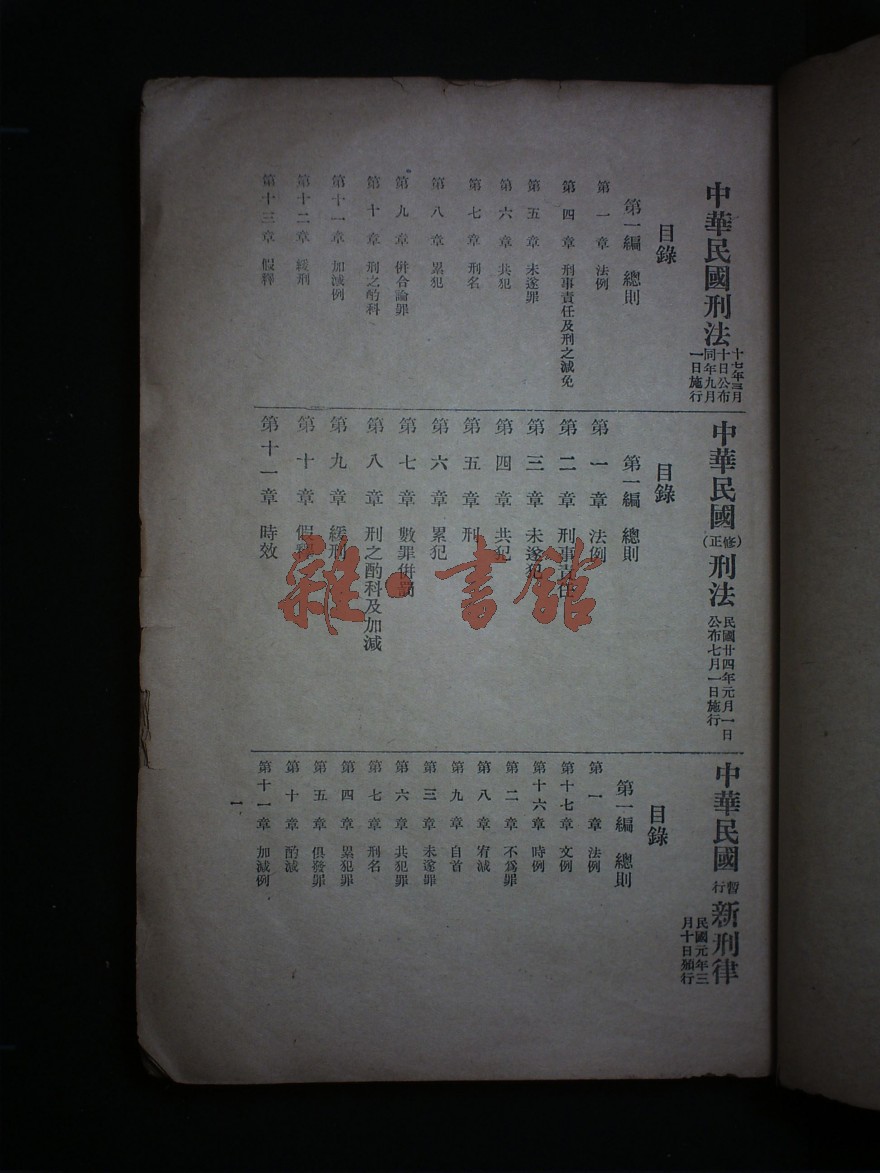 中華民國刑法
十七年三月
十日公布
同年九月
一日施行
目錄
第一編 總則
第一章 法例
第四章 刑事責任及刑之減免
第五章 未遂罪
第六章 共犯
第七章 刑名
第八章 累犯
第九章 併合論罪
第十章 刑之酌科
第十一章 加減例
第十二章 緩刑
第十三章 假釋
中華民國(修正)刑法
民國廿四年元月一日
公布七月一日施行
目錄
第一編 總則
第一章 法例
第二章 刑事責任
第三章 未遂犯
第四章 共犯
第五章 刑
第六章 累犯
第七章 數罪併罰
第八章 刑之酌科及加減
第九章 緩刑
第十章 假釋
第十一章 時效
中華民國暫行新刑律
民國元年三
月十日頒行
目錄
第一編 總則
第一章 法例
第十七章 文例
第十六章 時例
第二章 不爲罪
第八章 宥減
第九章 自首
第三章 未遂罪
第六章 共犯罪
第七章 刑名
第四章 累犯罪
第五章 俱發罪
第十章 酌減
第十一章 加減例
一
雜·書館